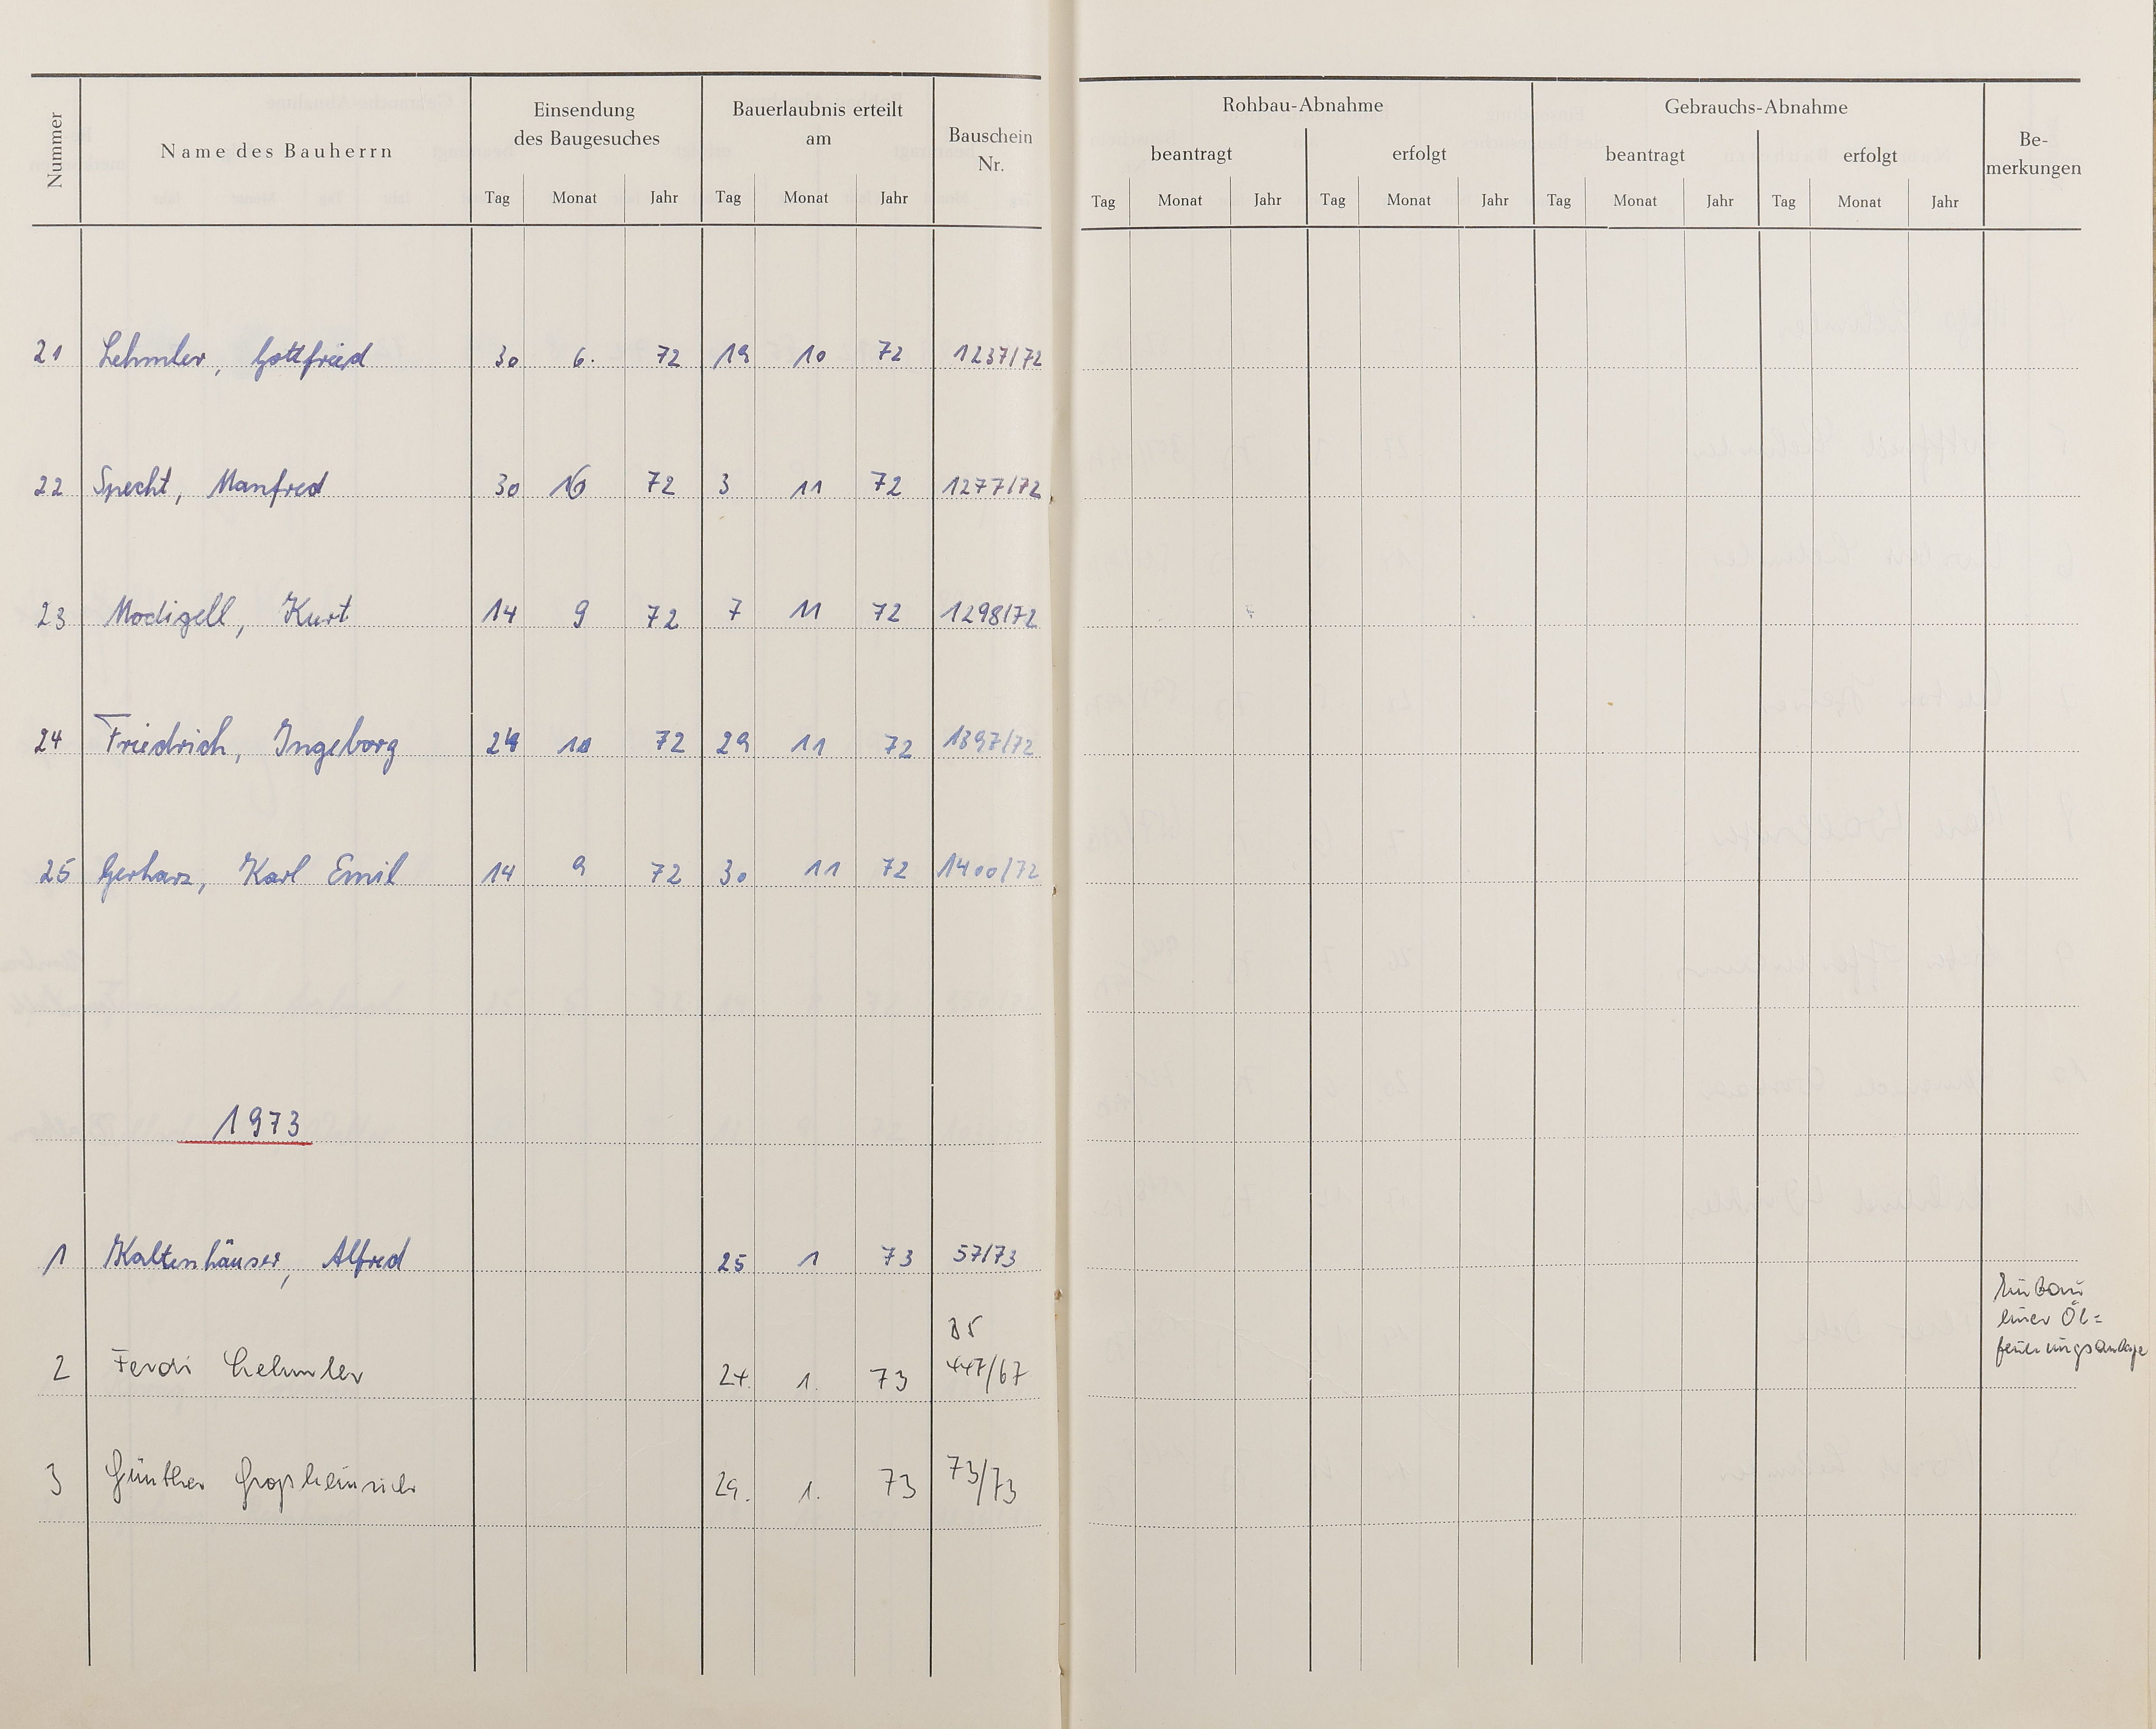 Nummer
Name des Bauherrn
Einsendung
des Baugesuches
Bauerlaubnis erteilt
am
Bauschein
Nr.
Rohbau-Abnahme
Gebrauchs-Abnahme
Be-
merkungen
beantragt erfolgt beantragt erfolgt
Tag Monat Jahr Tag Monat Jahr
Tag Monat Jahr Tag Monat Jahr Tag Monat Jahr Tag Monat Jahr
21 Lehmler, Gottfried 30 6. 72 19 10 72 1237/72
22 Specht, Manfred 30 72 3 11 72 1277/72
23 Modigell, Kurt 14 9 72 7 11 72 1298/72
24 Friedrich, Ingeborg 10 72 29 11 72 1397/72
25 Gerharz, Karl Emil 14 9 72 30 11 72 1400/72
1973
1 Kaltenhäuser, Alfred 25 1 73 57/73
Einbau
einer Öl=
feuerungsanlage
2 Ferdi Lehmler 24. 1. 73 447/67
3 Günther Großheinrich 29. 1. 73 73/73